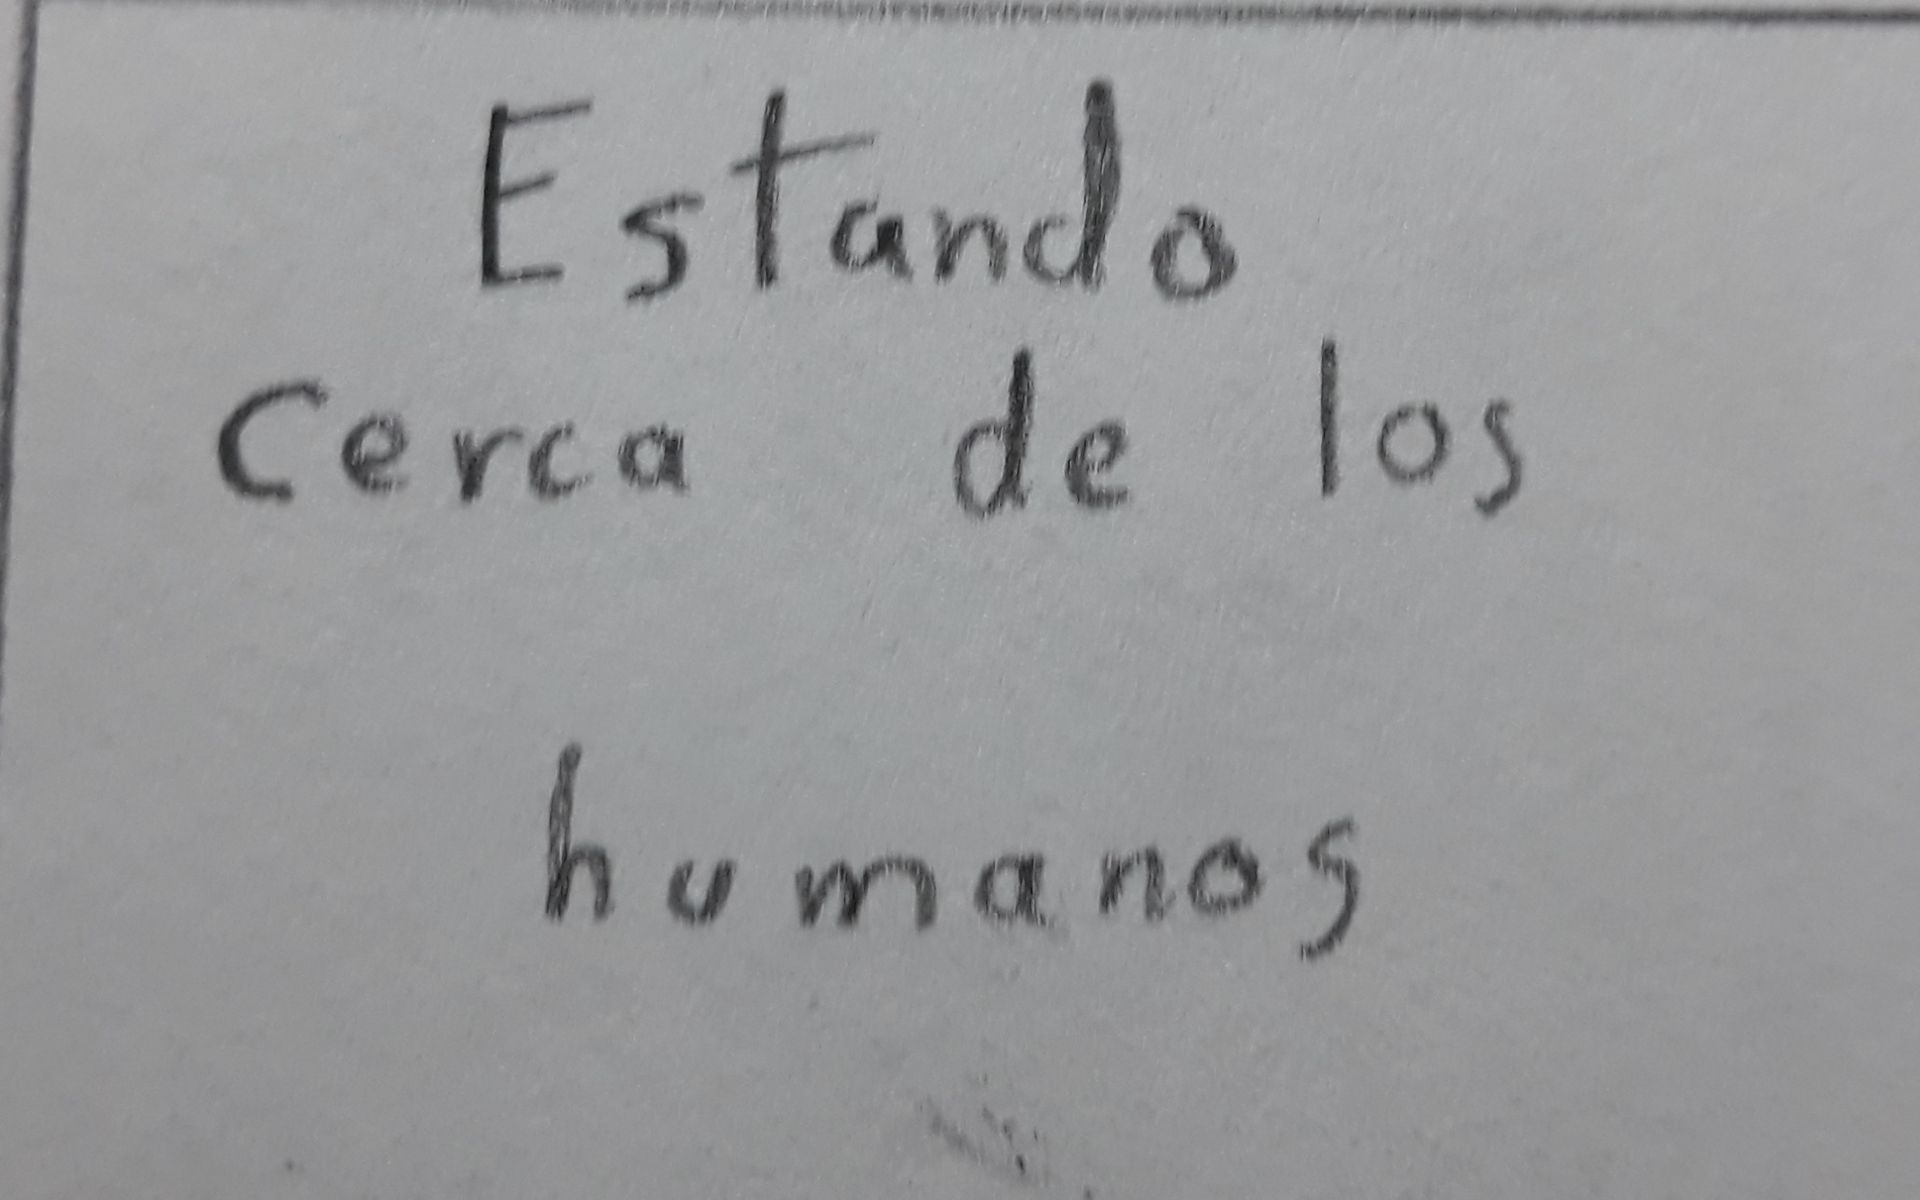 Estando
cerca de los
humanos